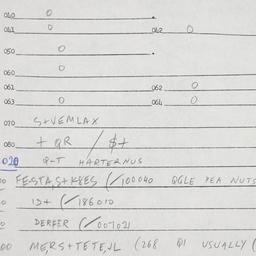 040 O
041 O 042 O
050 O
O
060
061 062 O
063 O 064 O
070 S+VEMLAX
080 + QR / $+
020 Q-T HARTERNUS
00 FESTA, S+K8ES (/100040 QGLE PEA NUTS
0 ID+ (/186010
0 DERFER (/007021
00 MERS+TETE, JL (268 QI USUALLY (